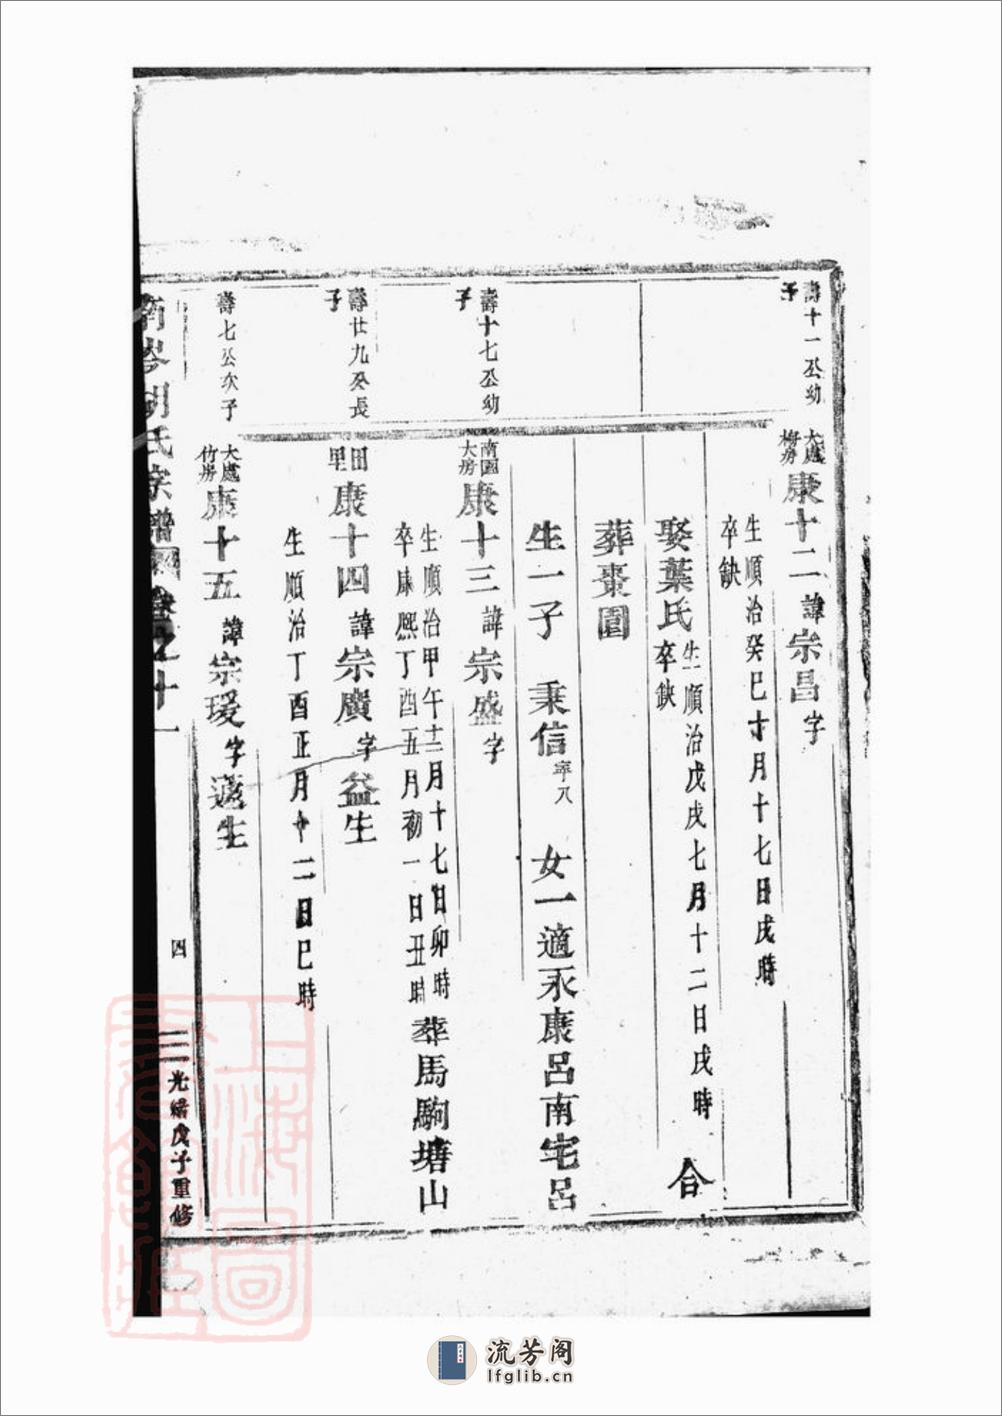 壽十一公幼
子
大處
梅房
康十二諱宗昌字
生順治癸巳十月十七日戌時
卒缺
娶葉氏生順治戊戌七月十二日戌時
卒缺
合
葬棗園
生一子 秉信 寧八 女一適永康呂南宅呂
壽十七公幼
子
南園
大房
康十三諱宗盛字
生順治甲午十二月十七日卯時
卒康熙丁酉五月初一日丑時
葬馬駒塘山
壽廿九公長
子
田
里
康十四諱宗廣字益生
生順治丁酉正月十二日巳時
壽七公次子
大處
竹房
康十五諱宗瑷字蘧生
南岑胡氏宗譜
卷之十一
四
光緒戊子重修
流芳阁
lfglib.cn